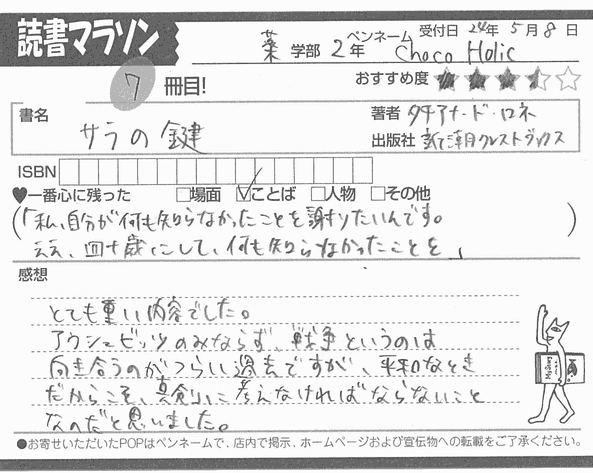 読書マラソン
受付日 24年 5月 8日
薬 学部 2年 ペンネーム Choco Holic
7 冊目!
おすすめ度
書名 サラの鍵
著者 タチアナ・ド・ロネ
出版社 新潮クレストブックス
ISBN
♥一番心に残った □場面 ☑ことば □人物 □その他
(「私、自分が何も知らなかったことを謝りたいんです。
ええ、四十歳にして、何も知らなかったことを」)
感想
とても重い内容でした。
アウシュビッツのみならず、戦争というのは
向き合うのがつらい過去ですが、平和なとき
だからこそ、真剣に考えなければならないこと
なのだと思いました。
●お寄せいただいたPOPはペンネームで、店内で掲示、ホームページおよび宣伝物への転載をご了承ください。